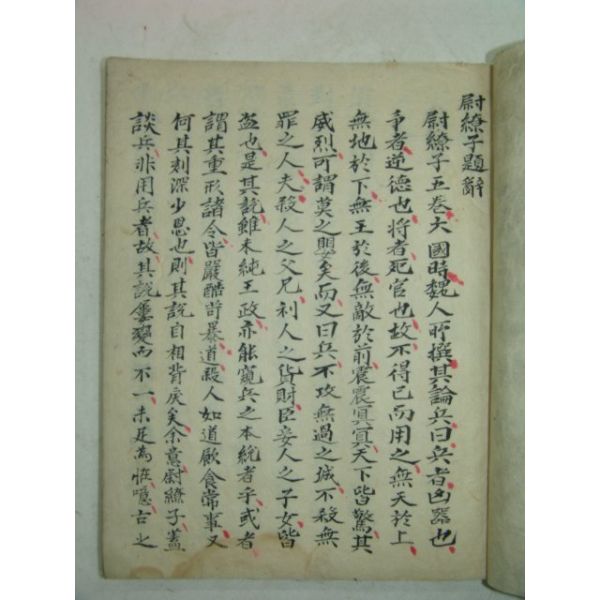 尉繚子題辭
尉繚子五卷大國時魏人所撰其論兵曰兵者凶器也
爭者逆德也將者死官也故不得已而用之無天於上
無地於下無王於後無敵於前震震冥冥天下皆驚其
威烈可謂莫之嬰矣而又曰兵不攻無過之城不殺無
罪之人夫殺人之父兄利人之貨財臣妾人之子女皆
盜也是其說雖未純王政亦能窺兵之本統者乎或者
謂其重形諸令皆嚴酷苛暴道殺人如道飮食常事又
何其刻深少恩也則其說自相背戾矣余意尉繚子蓋
談兵非用兵者故其說屢變而不一未足為恠噫古之